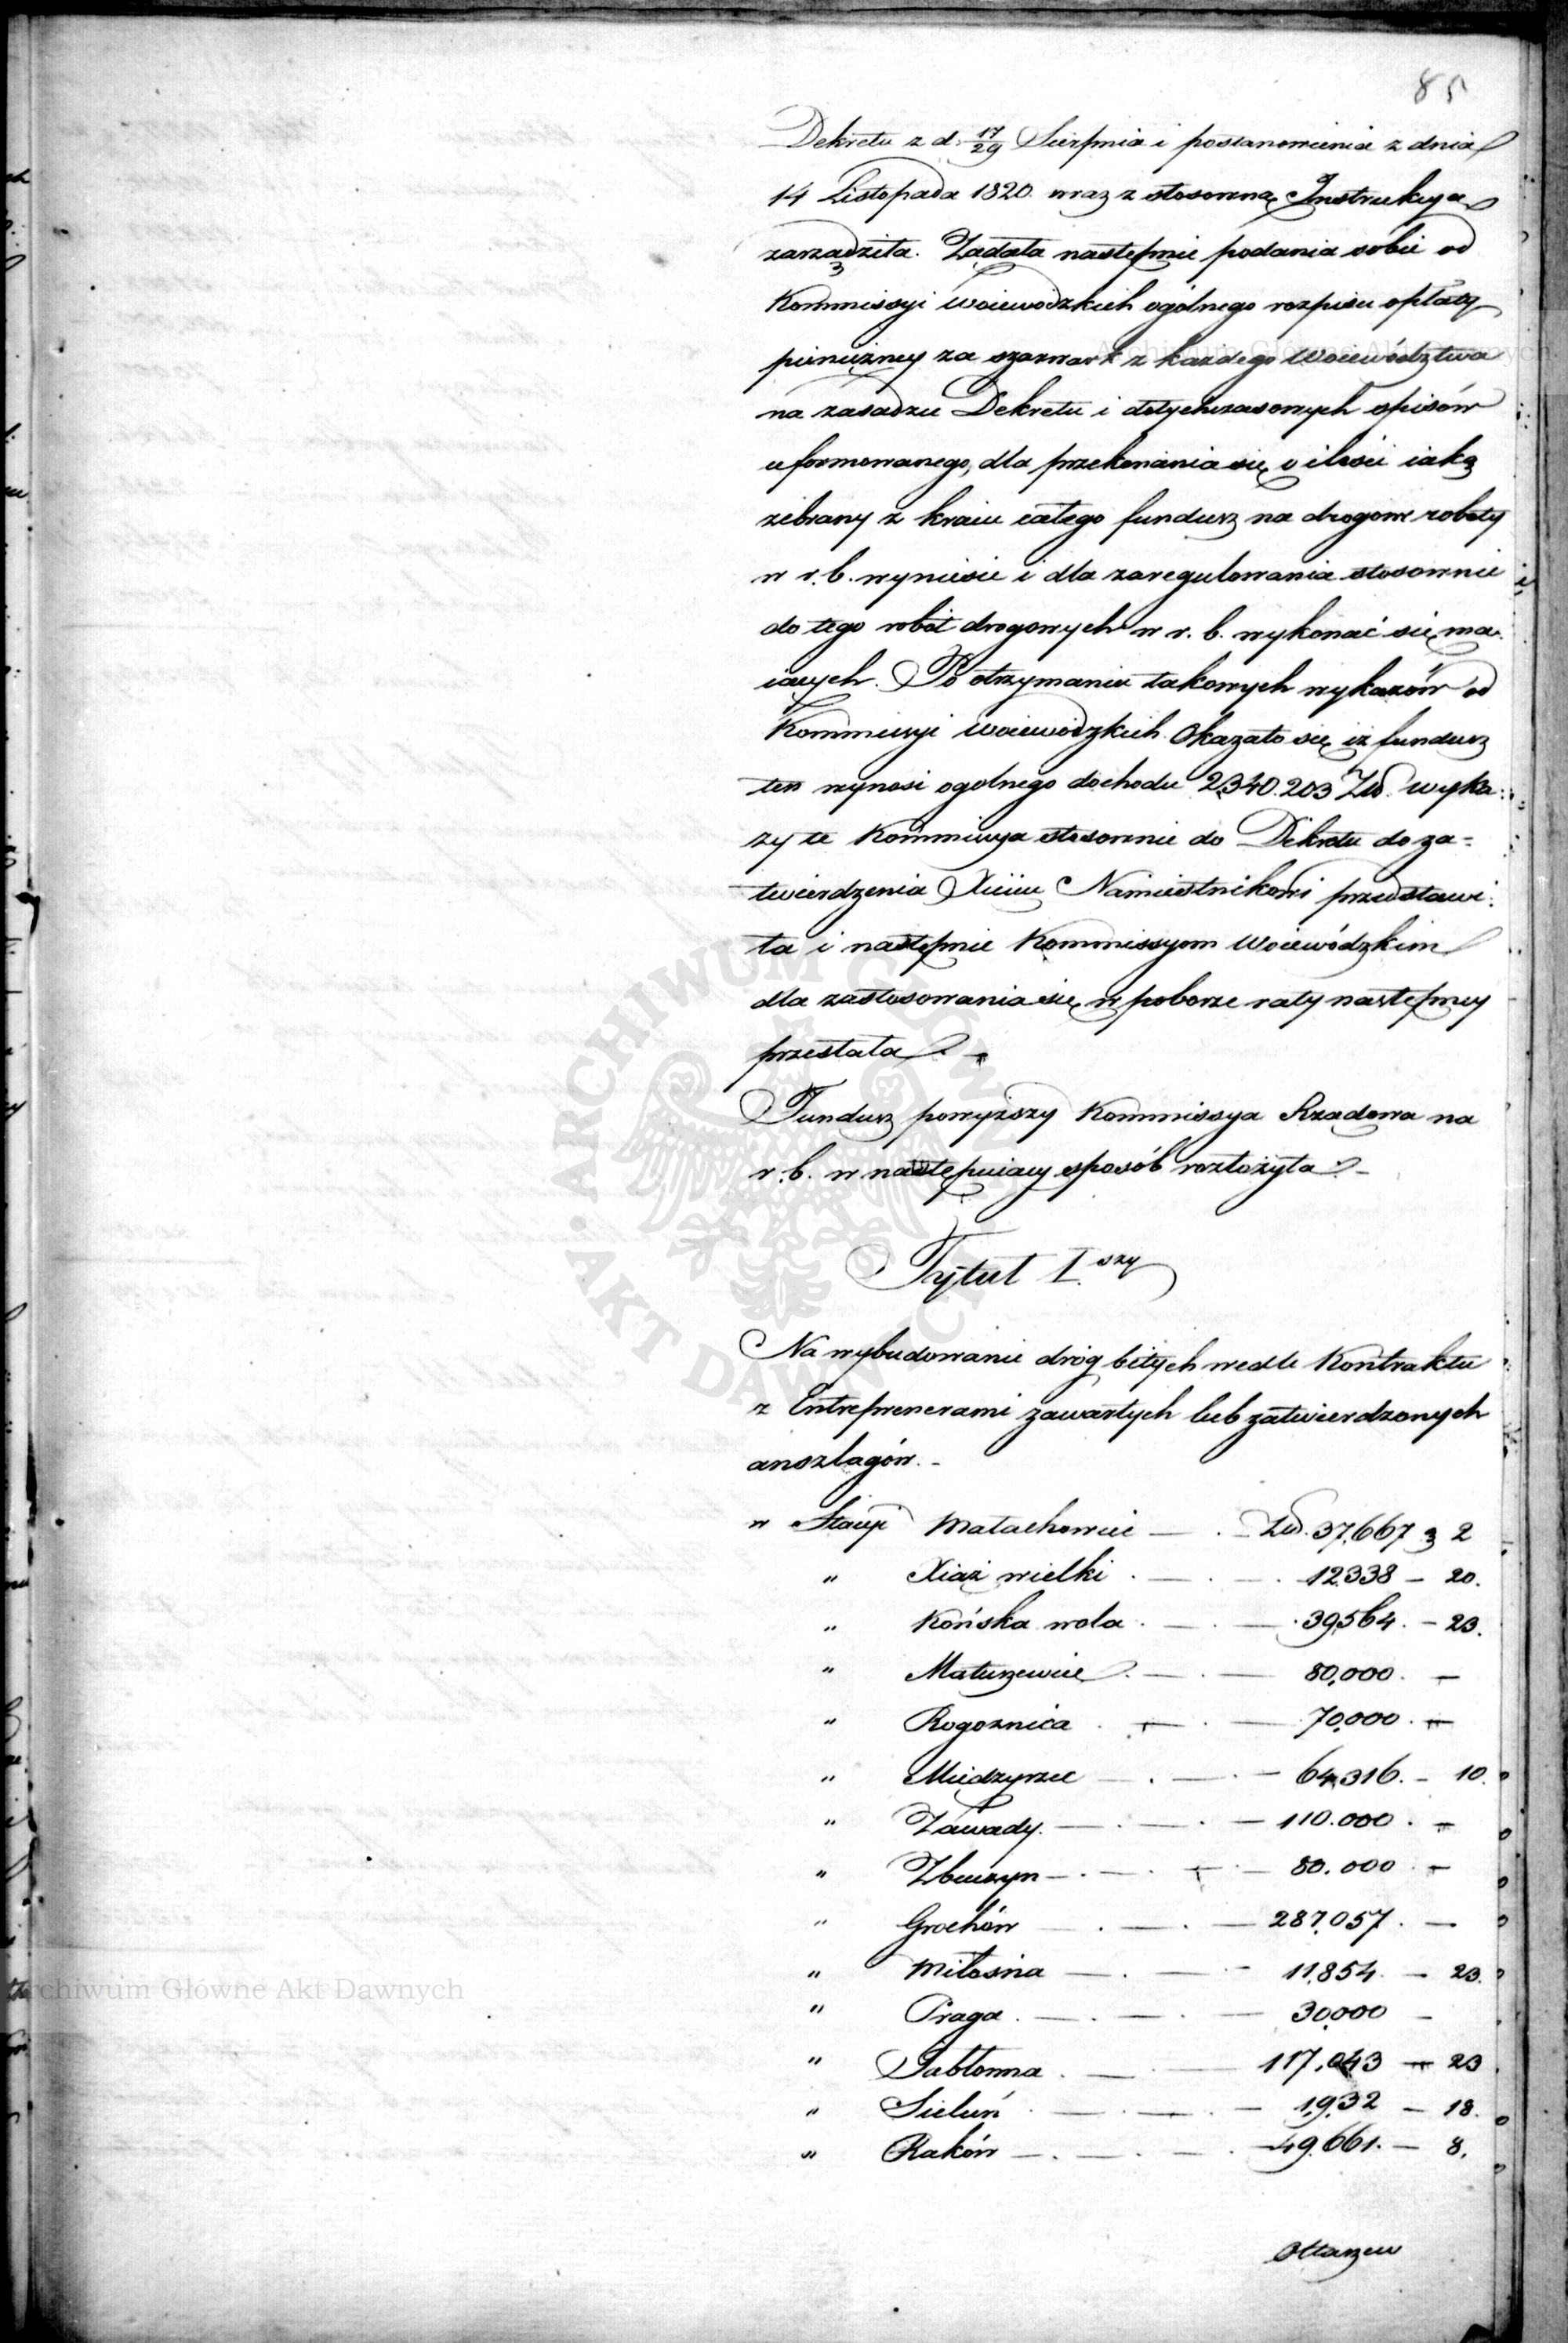 85
Dekretu z d. 17/29 Sierpnia i postanowienia z dnia
14 Listopada 1820. wraz z stosowną Instrukcyą
zarządziła. Żądała następnie podania sobie od
Kommissyi Woiewodzkich ogólnego rozpisu opłaty
pieniężney za szarwark z każdego Województwa
na zasadzie Dekretu i dotychczasowych spisów
uformowanego, dla przekonania się, o ilości iaką
zebrany z kraiu całego fundusz na drogowe roboty
w r. b. wyniesie i dla zaregulowania stosownie
do tego robót drogowych w r. b. wykonać się ma-
iących. Po otrzymaniu takowych wykazów od
Kommissyi Woiewodzkich Okazało się iż fundusz
ten wynosi ogolnego dochodu 2,340.203 Złł. wyka:
zy te Kommissya stosownie do Dekretu do za=
twierdzenia Xięciu Namiestnikowi przedstawi:
ła i następnie Kommissyom Woiewódzkim
dla zastosowania się w poborze raty następney
przesłała. –
Fundusz powyższy Kommissya Rządowa na
r. b. w następuiący sposób rozłożyła. –
Tytuł I.szy
Na wybudowanie dróg bitych wedle Kontraktu
z Entreprenerami zawartych lub zatwierdzonych
anszlagów. –
w Stacyi Małachowice — . — Złł. 37,667 g 2
" Xiąż wielki . — . — . 12338 – 20.
" Końska wola . — . — . 39,564. – 23.
" Matuszewice . — . — 80,000. –
" Rogoznica . — . — 70,000. –
" Miedzyrzec — . — . – 64,316. – 10.
" Zawady. — . — . – 110.000. –
" Zbuczyn — . — . — . – 80.000 –
" Grochów — . — . — 287,057. –
" Miłosna — . — – 11,854. – 23.
" Praga . — . — . — 30,000 –
" Jabłonna . — — 117,043 – 23
" Sieluń . — . — . – 1,932 – 18.
" Raków — . — . — . 49.661. – 8.
Ołtarzew
Archiwum Główne Akt Dawnych
Archiwum Główne Akt Dawnych
ARCHIWUM GŁÓWNE AKT DAWNYCH